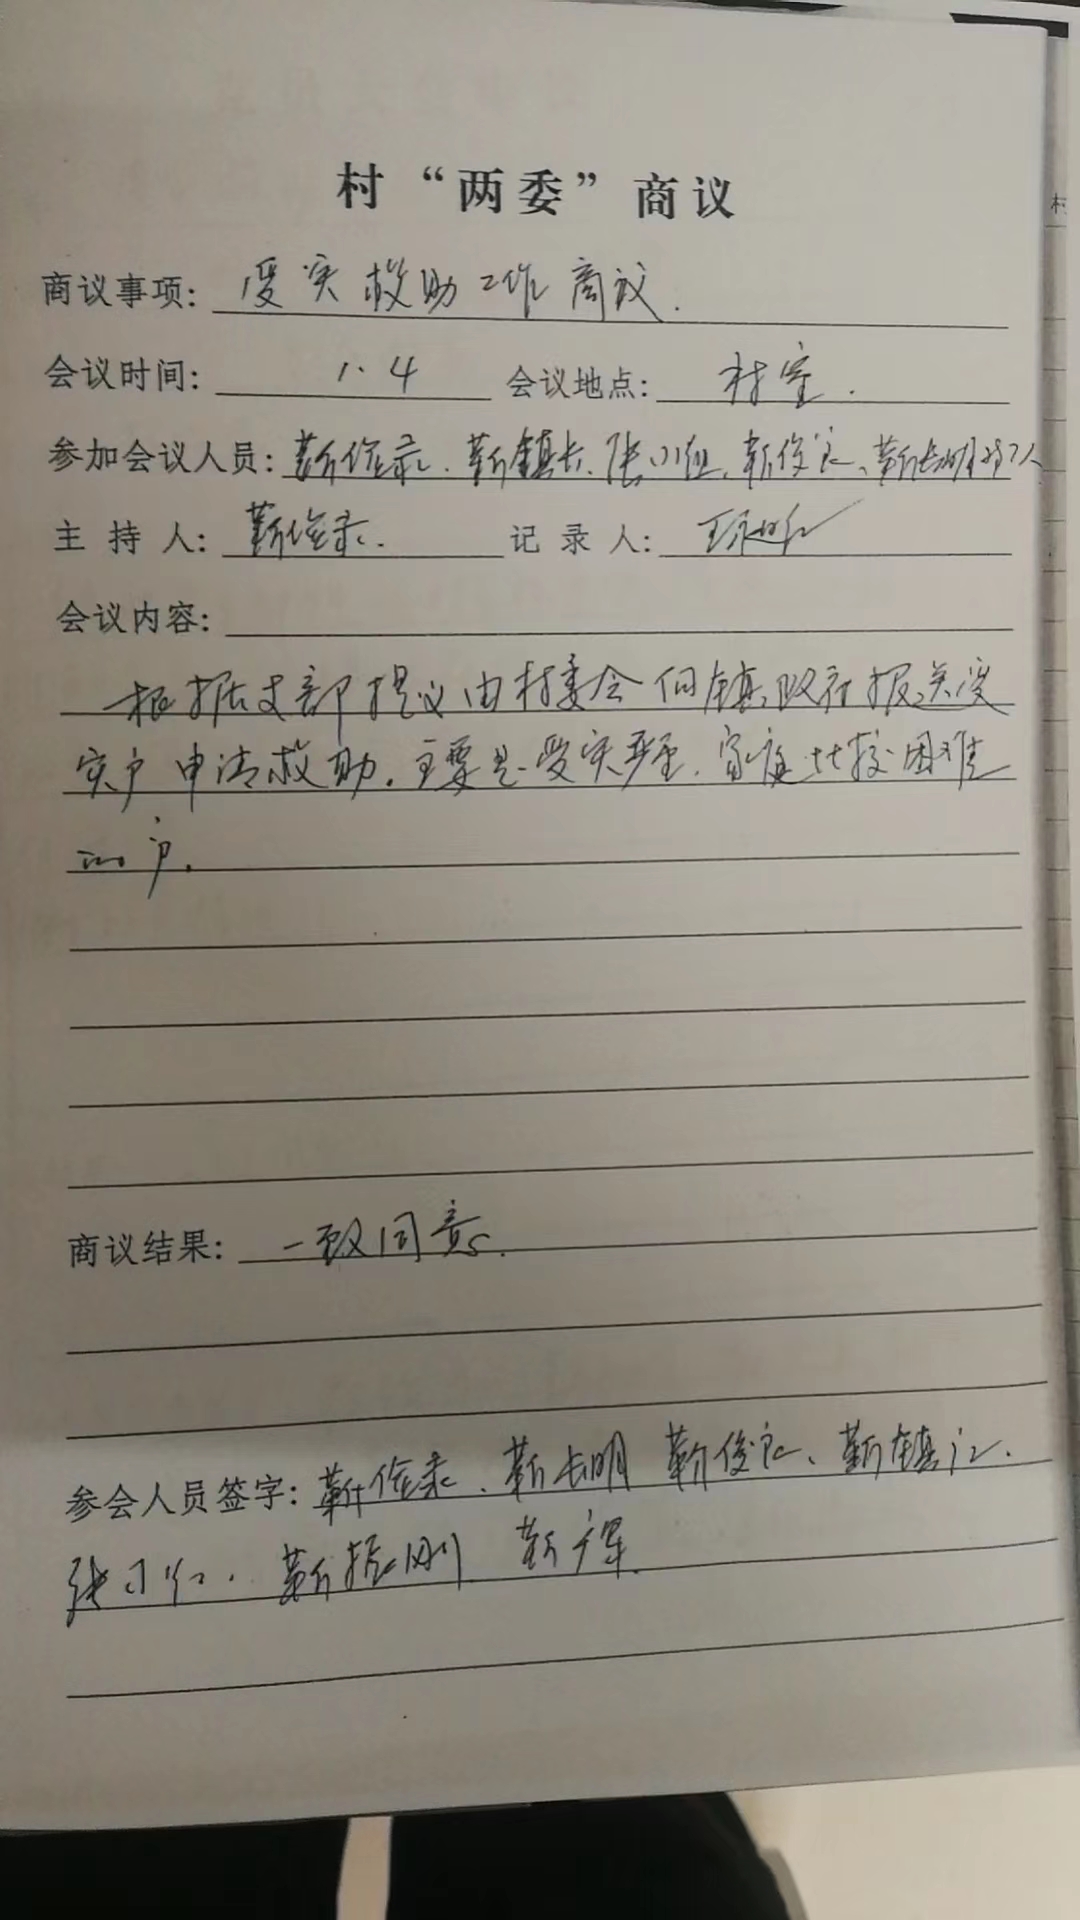 村“两委”商议
商议事项: 受灾救助工作商议.
会议时间: 1.4 会议地点: 村室.
参加会议人员: 靳俊录. 靳镇长. 张小红. 靳俊良、靳长明等7人
主持人: 靳俊录. 记录人:
会议内容:
根据支部提议由村委会向镇政府报送受
灾户申请救助. 主要是受灾严重. 家庭比较困难
的户.
商议结果: 一致同意.
参会人员签字: 靳俊录、靳长明 靳俊良、靳镇江.
张小红. 靳振刚 靳军.
村